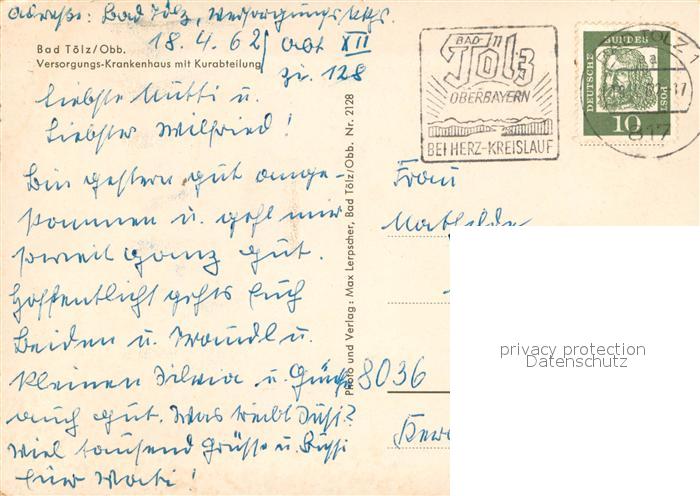 Adresse: Bad Tölz, Versorgungskrhs.
18.4.62 Abt XII
Zi. 128
Bad Tölz/Obb.
Versorgungs-Krankenhaus mit Kurabteilung
Liebste Mutti u.
Liebster Wilfried!
Bin gestern gut ange-
kommen u. geht mir
soweit ganz gut.
Hoffentlich gehts Euch
Beiden u. Traudl u.
kleinen Silvia u.
auch gut. Was treibt Susi?
Viel tausend Grüsse u. Bussi
Euer Vati!
Photo und Verlag: Max Lerpscher, Bad Tölz/Obb. Nr. 2128
BAD TÖLZ
OBERBAYERN
BEI HERZ-KREISLAUF
DEUTSCHE BUNDESPOST
10
TÖLZ 1
817
Frau
Mathilde
8036
privacy protection
Datenschutz